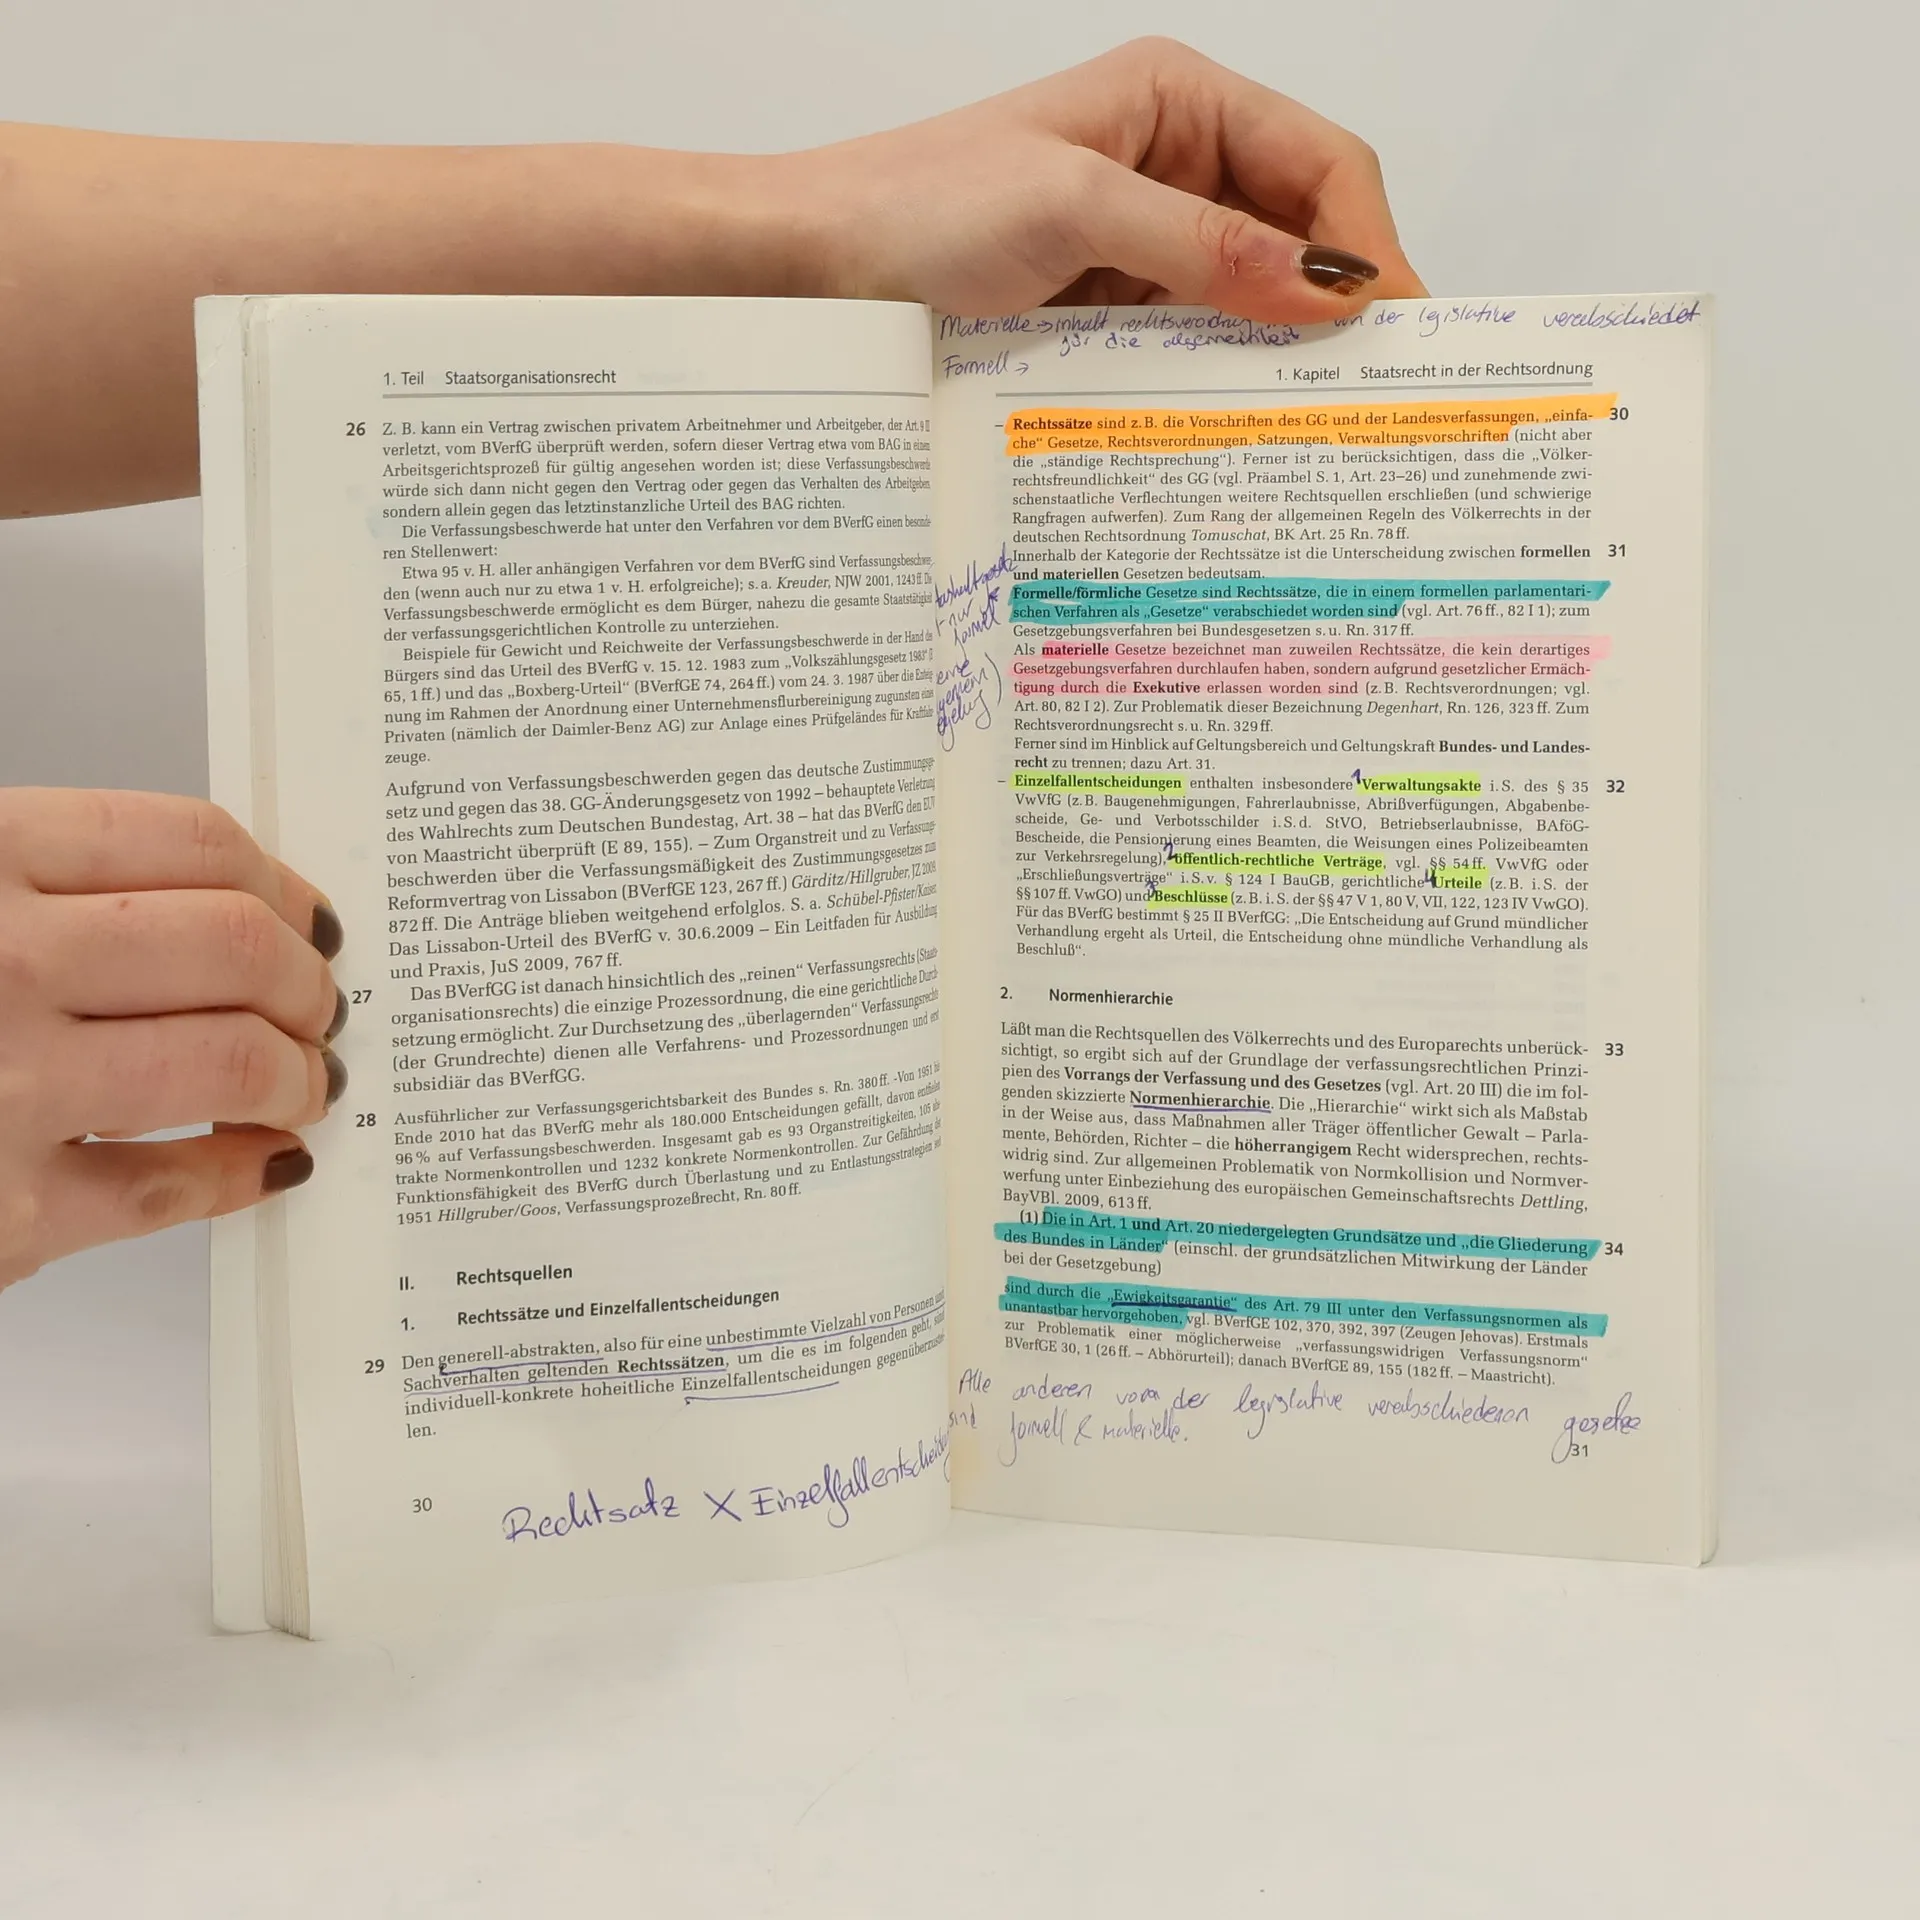 1. Teil Staatsorganisationsrecht
26 Z. B. kann ein Vertrag zwischen privatem Arbeitnehmer und Arbeitgeber, der Art. 9 II
verletzt, vom BVerfG überprüft werden, sofern dieser Vertrag etwa vom BAG in einem
Arbeitsgerichtsprozeß für gültig angesehen worden ist; diese Verfassungsbeschwerde
würde sich dann nicht gegen den Vertrag oder gegen das Verhalten des Arbeitgebers,
sondern allein gegen das letztinstanzliche Urteil des BAG richten.
Die Verfassungsbeschwerde hat unter den Verfahren vor dem BVerfG einen besonde-
ren Stellenwert:
Etwa 95 v. H. aller anhängigen Verfahren vor dem BVerfG sind Verfassungsbeschwer-
den (wenn auch nur zu etwa 1 v. H. erfolgreiche); s. a. Kreuder, NJW 2001, 1243 ff. Die
Verfassungsbeschwerde ermöglicht es dem Bürger, nahezu die gesamte Staatstätigkeit
der verfassungsgerichtlichen Kontrolle zu unterziehen.
Beispiele für Gewicht und Reichweite der Verfassungsbeschwerde in der Hand des
Bürgers sind das Urteil des BVerfG v. 15. 12. 1983 zum „Volkszählungsgesetz 1983“ (E
65, 1 ff.) und das „Boxberg-Urteil“ (BVerfGE 74, 264 ff.) vom 24. 3. 1987 über die Enteig-
nung im Rahmen der Anordnung einer Unternehmensflurbereinigung zugunsten eines
Privaten (nämlich der Daimler-Benz AG) zur Anlage eines Prüfgeländes für Kraftfahr-
zeuge.
Aufgrund von Verfassungsbeschwerden gegen das deutsche Zustimmungsge-
setz und gegen das 38. GG-Änderungsgesetz von 1992 – behauptete Verletzung
des Wahlrechts zum Deutschen Bundestag, Art. 38 – hat das BVerfG den EUV
von Maastricht überprüft (E 89, 155). – Zum Organstreit und zu Verfassungs-
beschwerden über die Verfassungsmäßigkeit des Zustimmungsgesetzes zum
Reformvertrag von Lissabon (BVerfGE 123, 267 ff.) Gärditz/Hillgruber, JZ 2009,
872 ff. Die Anträge blieben weitgehend erfolglos. S. a. Schübel-Pfister/Kaiser,
Das Lissabon-Urteil des BVerfG v. 30.6.2009 – Ein Leitfaden für Ausbildung
und Praxis, JuS 2009, 767 ff.
27 Das BVerfGG ist danach hinsichtlich des „reinen“ Verfassungsrechts (Staats-
organisationsrechts) die einzige Prozessordnung, die eine gerichtliche Durch-
setzung ermöglicht. Zur Durchsetzung des „überlagernden“ Verfassungsrechts
(der Grundrechte) dienen alle Verfahrens- und Prozessordnungen und erst
subsidiär das BVerfGG.
28 Ausführlicher zur Verfassungsgerichtsbarkeit des Bundes s. Rn. 380 ff. -Von 1951 bis
Ende 2010 hat das BVerfG mehr als 180.000 Entscheidungen gefällt, davon entfielen
96 % auf Verfassungsbeschwerden. Insgesamt gab es 93 Organstreitigkeiten, 105 abs-
trakte Normenkontrollen und 1232 konkrete Normenkontrollen. Zur Gefährdung der
Funktionsfähigkeit des BVerfG durch Überlastung und zu Entlastungsstrategien seit
1951 Hillgruber/Goos, Verfassungsprozeßrecht, Rn. 80 ff.
II. Rechtsquellen
1. Rechtssätze und Einzelfallentscheidungen
29 Den generell-abstrakten, also für eine unbestimmte Vielzahl von Personen und
Sachverhalten geltenden Rechtssätzen, um die es im folgenden geht, sind
individuell-konkrete hoheitliche Einzelfallentscheidungen gegenüberzustel-
len.
Rechtsatz X Einzelfallentscheidung
30
Materielle → inhalt rechtsverordnung von der legislative verabschiedet
für die allgemeinheit
Formell →
1. Kapitel Staatsrecht in der Rechtsordnung
– Rechtssätze sind z. B. die Vorschriften des GG und der Landesverfassungen, „einfa- 30
che“ Gesetze, Rechtsverordnungen, Satzungen, Verwaltungsvorschriften (nicht aber
die „ständige Rechtsprechung“). Ferner ist zu berücksichtigen, dass die „Völker-
rechtsfreundlichkeit“ des GG (vgl. Präambel S. 1, Art. 23–26) und zunehmende zwi-
schenstaatliche Verflechtungen weitere Rechtsquellen erschließen (und schwierige
Rangfragen aufwerfen). Zum Rang der allgemeinen Regeln des Völkerrechts in der
deutschen Rechtsordnung Tomuschat, BK Art. 25 Rn. 78 ff.
Innerhalb der Kategorie der Rechtssätze ist die Unterscheidung zwischen formellen 31
und materiellen Gesetzen bedeutsam.
Formelle/förmliche Gesetze sind Rechtssätze, die in einem formellen parlamentari-
schen Verfahren als „Gesetze“ verabschiedet worden sind (vgl. Art. 76 ff., 82 I 1); zum
Gesetzgebungsverfahren bei Bundesgesetzen s. u. Rn. 317 ff.
Als materielle Gesetze bezeichnet man zuweilen Rechtssätze, die kein derartiges
Gesetzgebungsverfahren durchlaufen haben, sondern aufgrund gesetzlicher Ermäch-
tigung durch die Exekutive erlassen worden sind (z. B. Rechtsverordnungen; vgl.
Art. 80, 82 I 2). Zur Problematik dieser Bezeichnung Degenhart, Rn. 126, 323 ff. Zum
Rechtsverordnungsrecht s. u. Rn. 329 ff.
Ferner sind im Hinblick auf Geltungsbereich und Geltungskraft Bundes- und Landes-
recht zu trennen; dazu Art. 31.
nur
formel
– Einzelfallentscheidungen enthalten insbesondere 1 Verwaltungsakte i. S. des § 35 32
VwVfG (z. B. Baugenehmigungen, Fahrerlaubnisse, Abrißverfügungen, Abgabenbe-
scheide, Ge- und Verbotsschilder i. S. d. StVO, Betriebserlaubnisse, BAföG-
Bescheide, die Pensionierung eines Beamten, die Weisungen eines Polizeibeamten
zur Verkehrsregelung), 2 öffentlich-rechtliche Verträge, vgl. §§ 54 ff. VwVfG oder
„Erschließungsverträge“ i. S. v. § 124 I BauGB, gerichtliche 4 Urteile (z. B. i. S. der
§§ 107 ff. VwGO) und 3 Beschlüsse (z. B. i. S. der §§ 47 V 1, 80 V, VII, 122, 123 IV VwGO).
Für das BVerfG bestimmt § 25 II BVerfGG: „Die Entscheidung auf Grund mündlicher
Verhandlung ergeht als Urteil, die Entscheidung ohne mündliche Verhandlung als
Beschluß“.
2. Normenhierarchie
Läßt man die Rechtsquellen des Völkerrechts und des Europarechts unberück- 33
sichtigt, so ergibt sich auf der Grundlage der verfassungsrechtlichen Prinzi-
pien des Vorrangs der Verfassung und des Gesetzes (vgl. Art. 20 III) die im fol-
genden skizzierte Normenhierarchie. Die „Hierarchie“ wirkt sich als Maßstab
in der Weise aus, dass Maßnahmen aller Träger öffentlicher Gewalt – Parla-
mente, Behörden, Richter – die höherrangigem Recht widersprechen, rechts-
widrig sind. Zur allgemeinen Problematik von Normkollision und Normver-
werfung unter Einbeziehung des europäischen Gemeinschaftsrechts Dettling,
BayVBl. 2009, 613 ff.
(1) Die in Art. 1 und Art. 20 niedergelegten Grundsätze und „die Gliederung 34
des Bundes in Länder“ (einschl. der grundsätzlichen Mitwirkung der Länder
bei der Gesetzgebung)
sind durch die „Ewigkeitsgarantie“ des Art. 79 III unter den Verfassungsnormen als
unantastbar hervorgehoben, vgl. BVerfGE 102, 370, 392, 397 (Zeugen Jehovas). Erstmals
zur Problematik einer möglicherweise „verfassungswidrigen Verfassungsnorm“
BVerfGE 30, 1 (26 ff. – Abhörurteil); danach BVerfGE 89, 155 (182 ff. – Maastricht).
Alle anderen von der legislative verabschiedenen gesetze
sind formell & materielle.
31